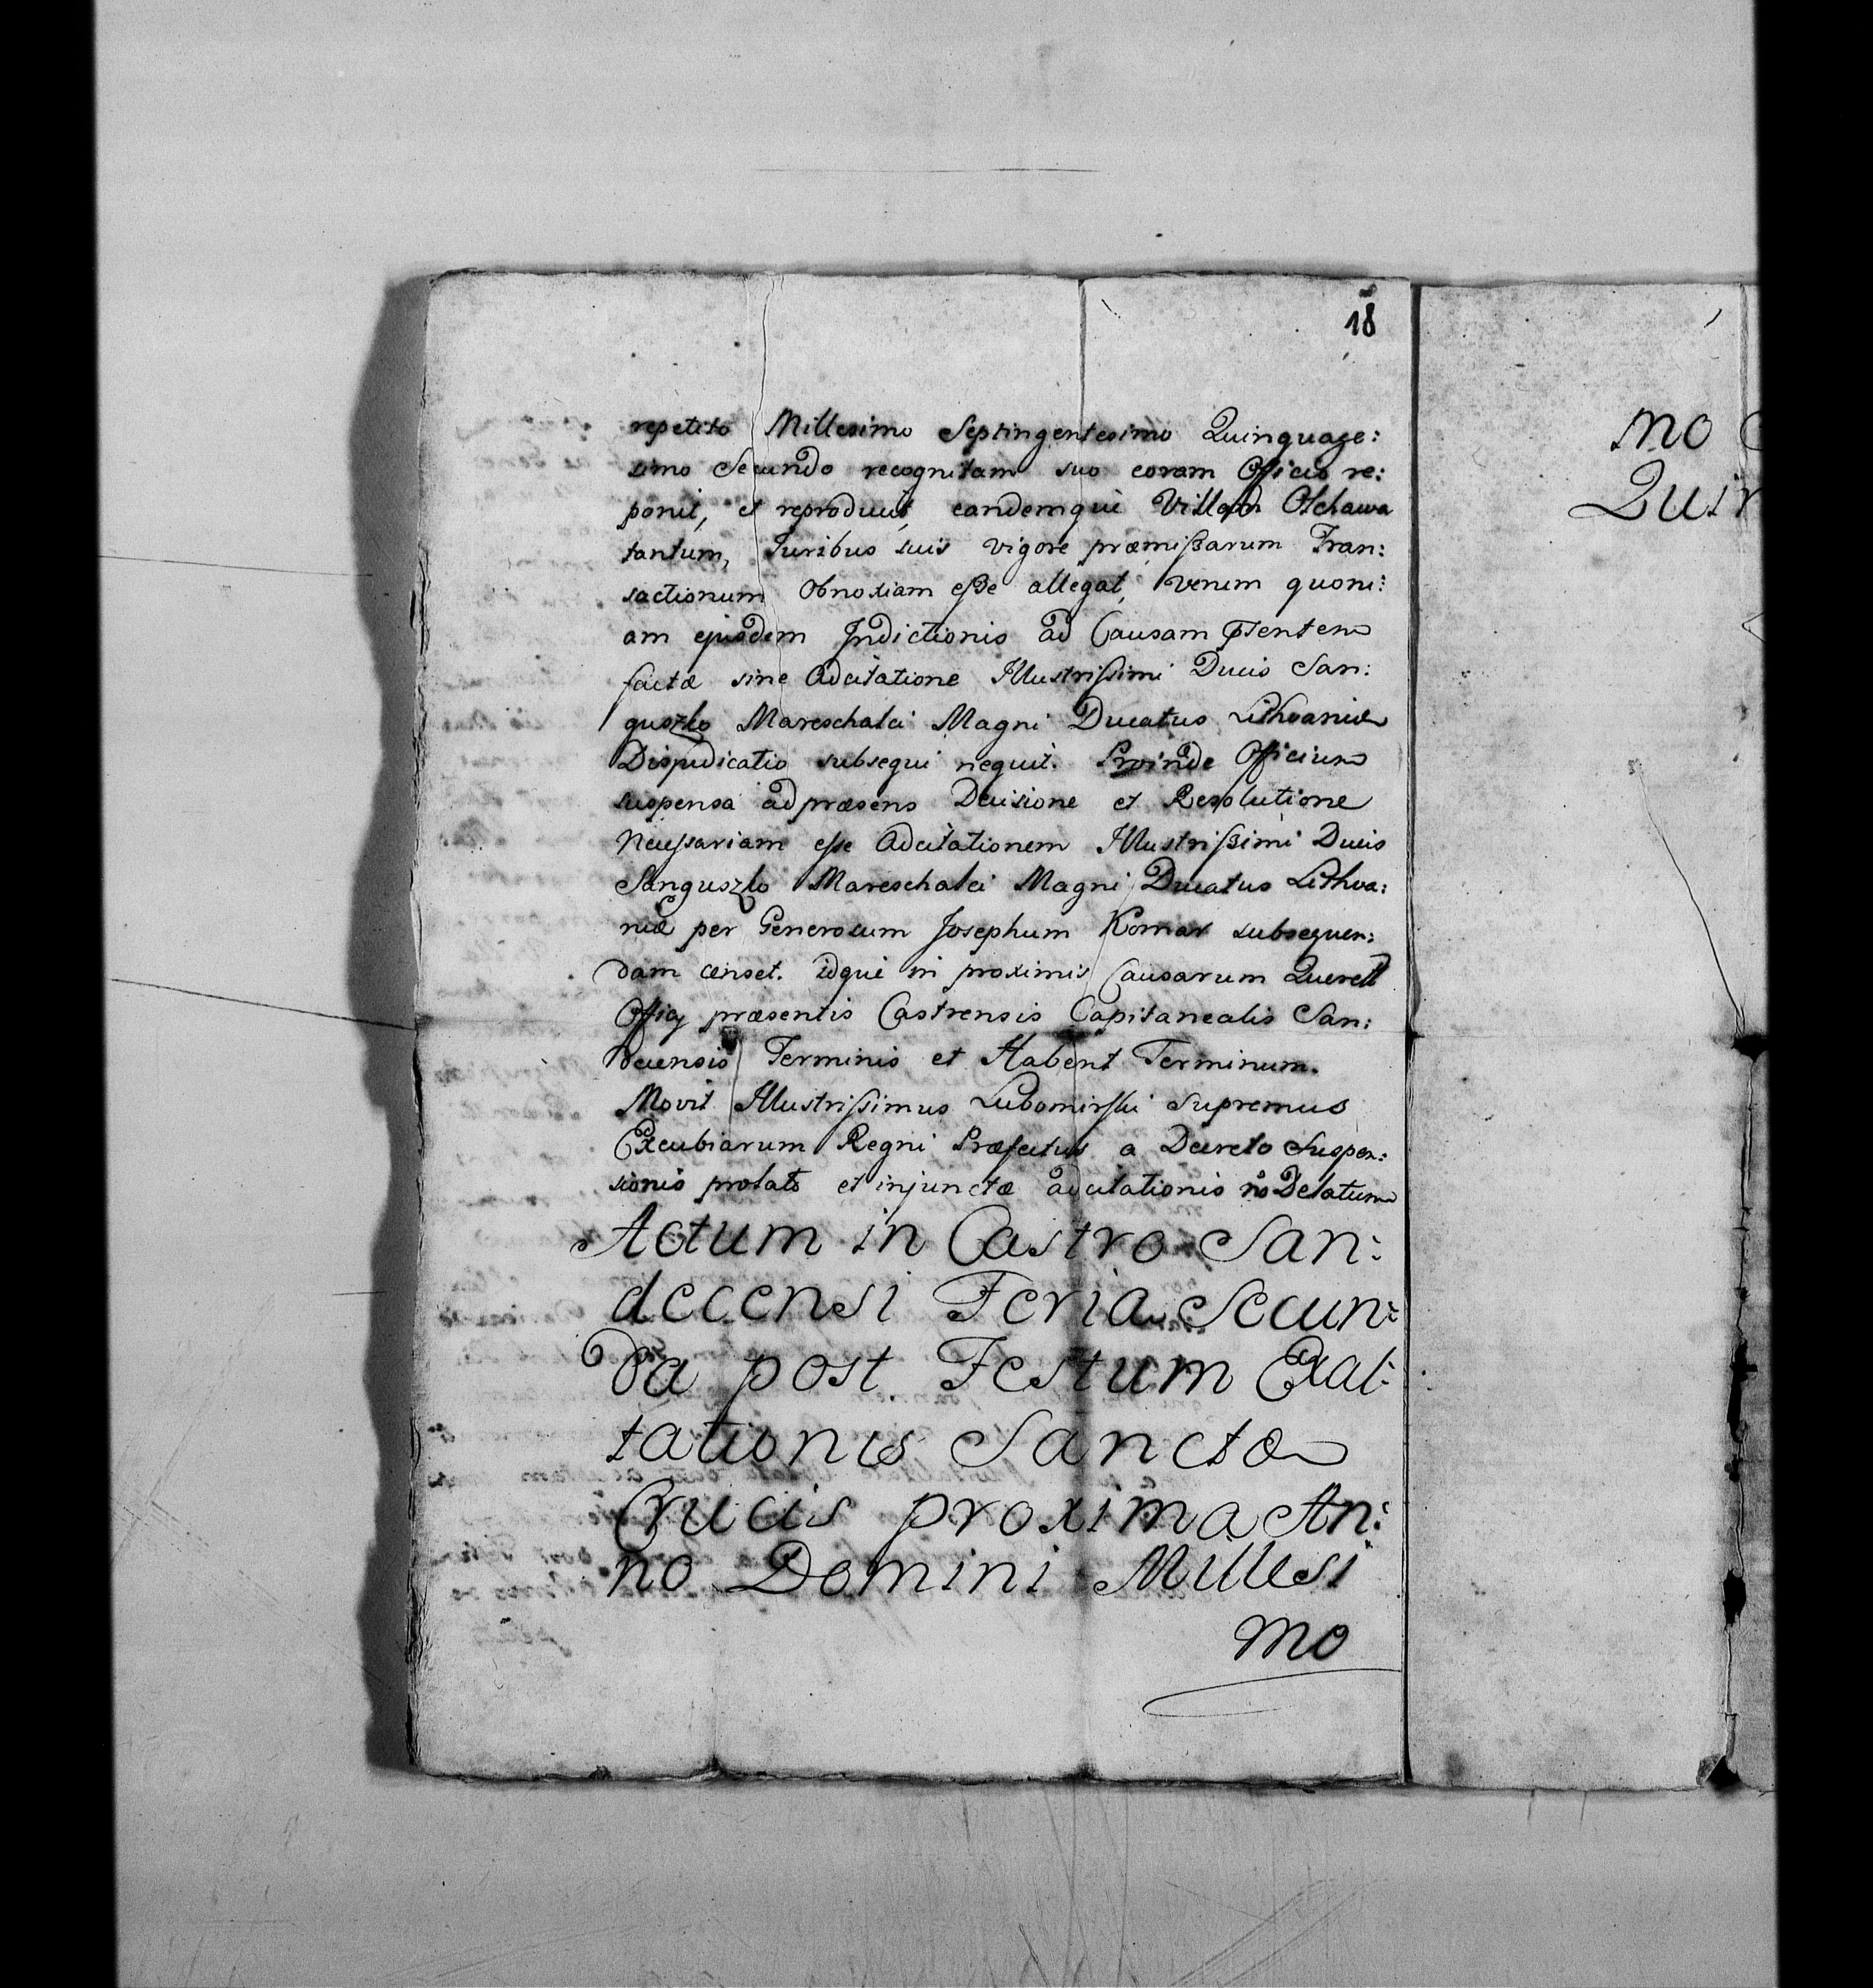 18
repetito Millesimo Septingentesimo Quinquage:
simo Secundo recognitam suo coram Officio re:
ponit, et reproducit, eandemque Villam Olchawa
tantum, Juribus suis vigore præmißarum Tran:
sactionum Obnoxiam eße allegat, verum quoni:
am ejusdem Indictionis ad Causam
factæ sine Adcitatione Illustrißimi Ducis San:
guszko Mareschalci Magni Ducatus Lithvaniæ
Disjudicatio subsequi nequit. Proinde Officium
suspensa ad præsens Decisione et Resolutione
Necessariam esse Adcitationem Illustrißimi Ducis
Sanguszko Mareschalci Magni Ducatus Lithva:
niæ per Generosum Josephum Komar subsequen:
dam censet. idque in proximis Causarum Querell
Officij præsentis Castrensis Capitanealis San:
decensis Terminis et Habent Terminum.
Movit Illustrissimus Lubomirski Supremus
Excubiarum Regni Præfectus a Decreto Suspen:
sionis prolato et injunctæ adcitationis no Delatum
Actum in Castro San:
decensi Feria Secun:
da post Festum Exal:
tationis Sanctæ
Crucis proxima An:
no Domini Millesi
mo
mo
Quin